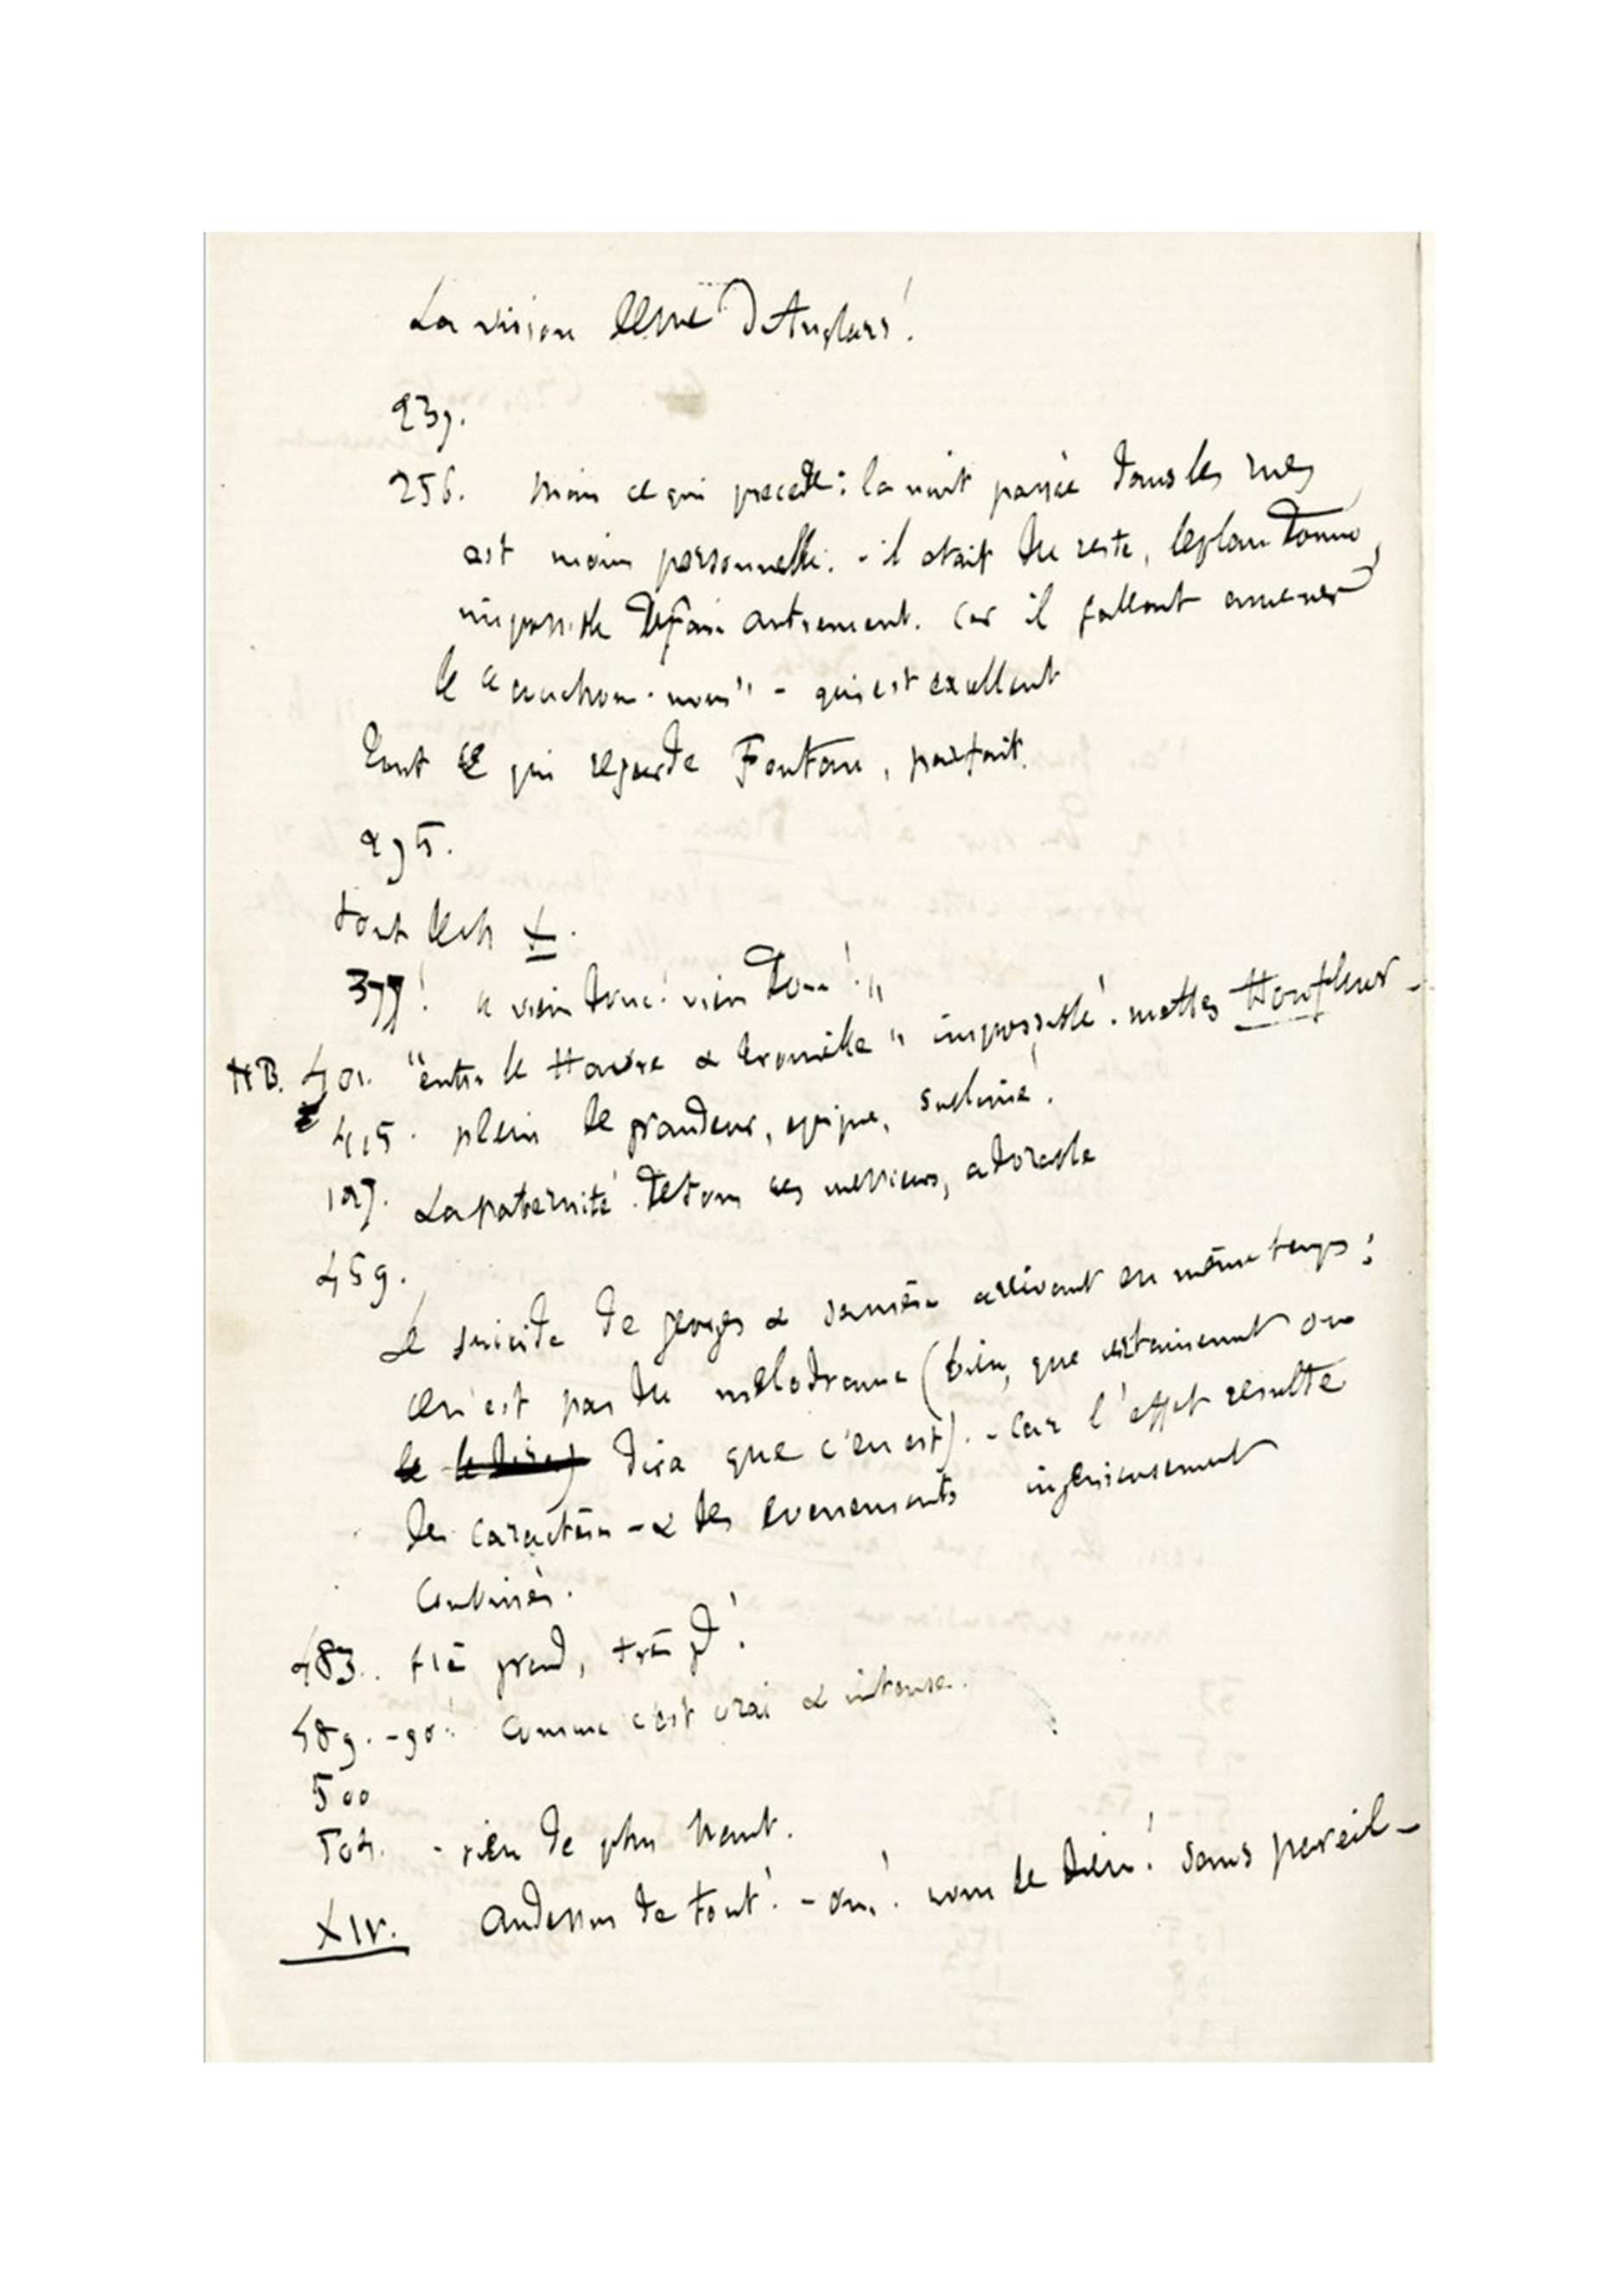 La vision de Mme d'Anglars!
237.
256. mais ce qui precede: la nuit passée dans les rues
est moins personnelle. - il etait du reste, le plan donné,
impossible de faire autrement. Car il fallait amener
le « couchons-nous" - qui est excellent
Tout ce qui regarde Fontan, parfait.
275.
tout le ch X.
377! « vive donc! vive donc! "
NB. 401. "entre le Havre & Trouville" impossible! mettez Honfleur -
415. plein de grandeur, epique, sublime!
427. La paternité de tous ces messieurs, adorable
459.
Le suicide de georges & son frère arrivant en même temps:
ce n'est pas du mélodrame (bien, que certainement on
le dira que c'en est). - Car l'effet resulte
des caractères - & des evenements ingenieusement
combinés.
483. très grand, très gd!
489. -90! comme c'est vrai & intense.
500
504. - rien de plus haut.
XIV. Au dessus de tout! - oui! nom de Dieu! sans pareil -